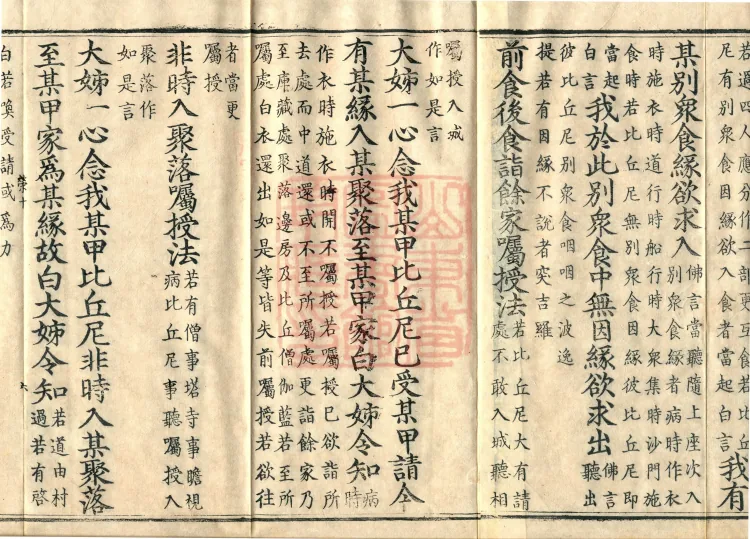 若過四人應分作二部更互食若比
尼有別眾食因緣欲入食者當起白言
我有
某別眾食緣欲求入
佛言當聽隨上座次入
別眾食緣者病時作衣
時施衣時道行時船行時大眾集時沙門施
食時若比丘尼無別眾食因緣彼比丘尼即
當起
白言
我於此別眾食中無因緣欲求出
佛言
聽出
彼比丘尼別眾食咽咽之波逸
提若有因緣不說者突吉羅
前食後食詣餘家囑授法
若比丘尼大有請
處不敢入城聽相
囑授入城
作如是言
大姊一心念我某甲比丘尼已受某甲請今
有某緣入某聚落至某甲家白大姊令知
病
時
作衣時施衣時開不囑授若囑授已欲詣所
去處而中道還或不至所囑處更詣餘家乃
至庫藏處聚落邊房及比丘僧伽藍若至所
囑處白衣還出如是等皆失前囑授若欲往
者當更
囑授
非時入聚落囑授法
若有僧事塔寺事瞻視
病比丘尼事聽囑授入
聚落作
如是言
大姊一心念我某甲比丘尼非時入某聚落
至某甲家爲某緣故白大姊令知
若道由村
過若有啓
榮十
六
白若喚受請或爲力